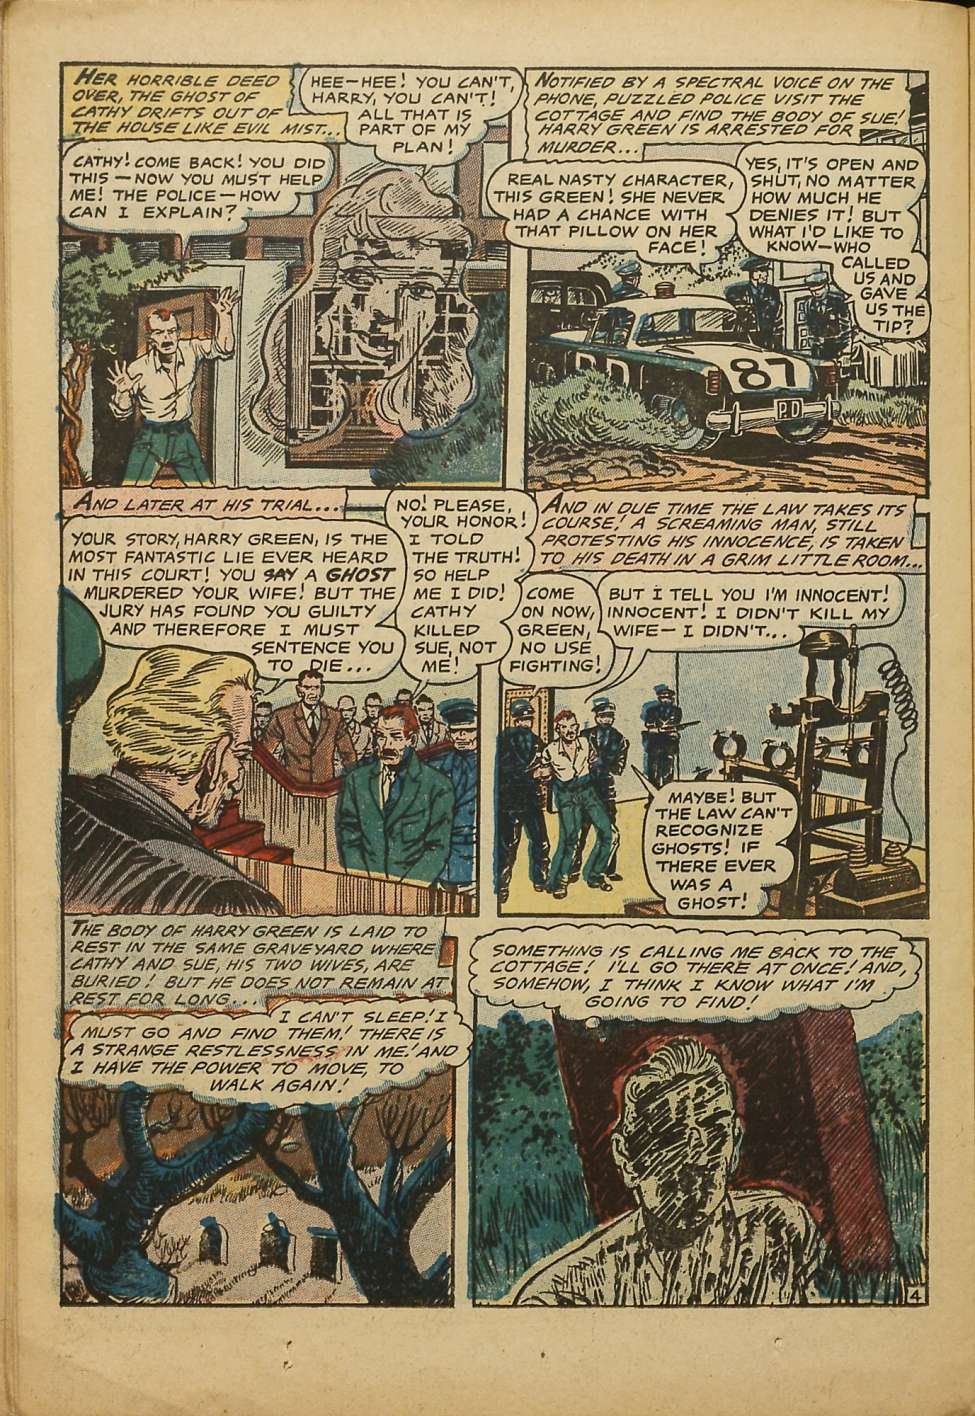 HER HORRIBLE DEED
OVER, THE GHOST OF
CATHY DRIFTS OUT OF
THE HOUSE LIKE EVIL MIST...
HEE-HEE! YOU CAN'T,
HARRY, YOU CAN'T!
ALL THAT IS
PART OF MY
PLAN!
CATHY! COME BACK! YOU DID
THIS—NOW YOU MUST HELP
ME! THE POLICE—HOW
CAN I EXPLAIN?
NOTIFIED BY A SPECTRAL VOICE ON THE
PHONE, PUZZLED POLICE VISIT THE
COTTAGE AND FIND THE BODY OF SUE!
HARRY GREEN IS ARRESTED FOR
MURDER...
REAL NASTY CHARACTER,
THIS GREEN! SHE NEVER
HAD A CHANCE WITH
THAT PILLOW ON HER
FACE!
YES, IT'S OPEN AND
SHUT, NO MATTER
HOW MUCH HE
DENIES IT! BUT
WHAT I'D LIKE TO
KNOW—WHO
CALLED
US AND
GAVE
US THE
TIP?
87
P.D
AND LATER AT HIS TRIAL...
YOUR STORY, HARRY GREEN, IS THE
MOST FANTASTIC LIE EVER HEARD
IN THIS COURT! YOU SAY A GHOST
MURDERED YOUR WIFE! BUT THE
JURY HAS FOUND YOU GUILTY
AND THEREFORE I MUST
SENTENCE YOU
TO DIE...
NO! PLEASE,
YOUR HONOR!
I TOLD
THE TRUTH!
SO HELP
ME I DID!
CATHY
KILLED
SUE, NOT
ME!
AND IN DUE TIME THE LAW TAKES ITS
COURSE! A SCREAMING MAN, STILL
PROTESTING HIS INNOCENCE, IS TAKEN
TO HIS DEATH IN A GRIM LITTLE ROOM...
COME
ON NOW,
GREEN,
NO USE
FIGHTING!
BUT I TELL YOU I'M INNOCENT!
INNOCENT! I DIDN'T KILL MY
WIFE—I DIDN'T...
MAYBE! BUT
THE LAW CAN'T
RECOGNIZE
GHOSTS! IF
THERE EVER
WAS A
GHOST!
THE BODY OF HARRY GREEN IS LAID TO
REST IN THE SAME GRAVEYARD WHERE
CATHY AND SUE, HIS TWO WIVES, ARE
BURIED! BUT HE DOES NOT REMAIN AT
REST FOR LONG...
I CAN'T SLEEP! I
MUST GO AND FIND THEM! THERE IS
A STRANGE RESTLESSNESS IN ME! AND
I HAVE THE POWER TO MOVE, TO
WALK AGAIN!
SOMETHING IS CALLING ME BACK TO THE
COTTAGE! I'LL GO THERE AT ONCE! AND,
SOMEHOW, I THINK I KNOW WHAT I'M
GOING TO FIND!
4